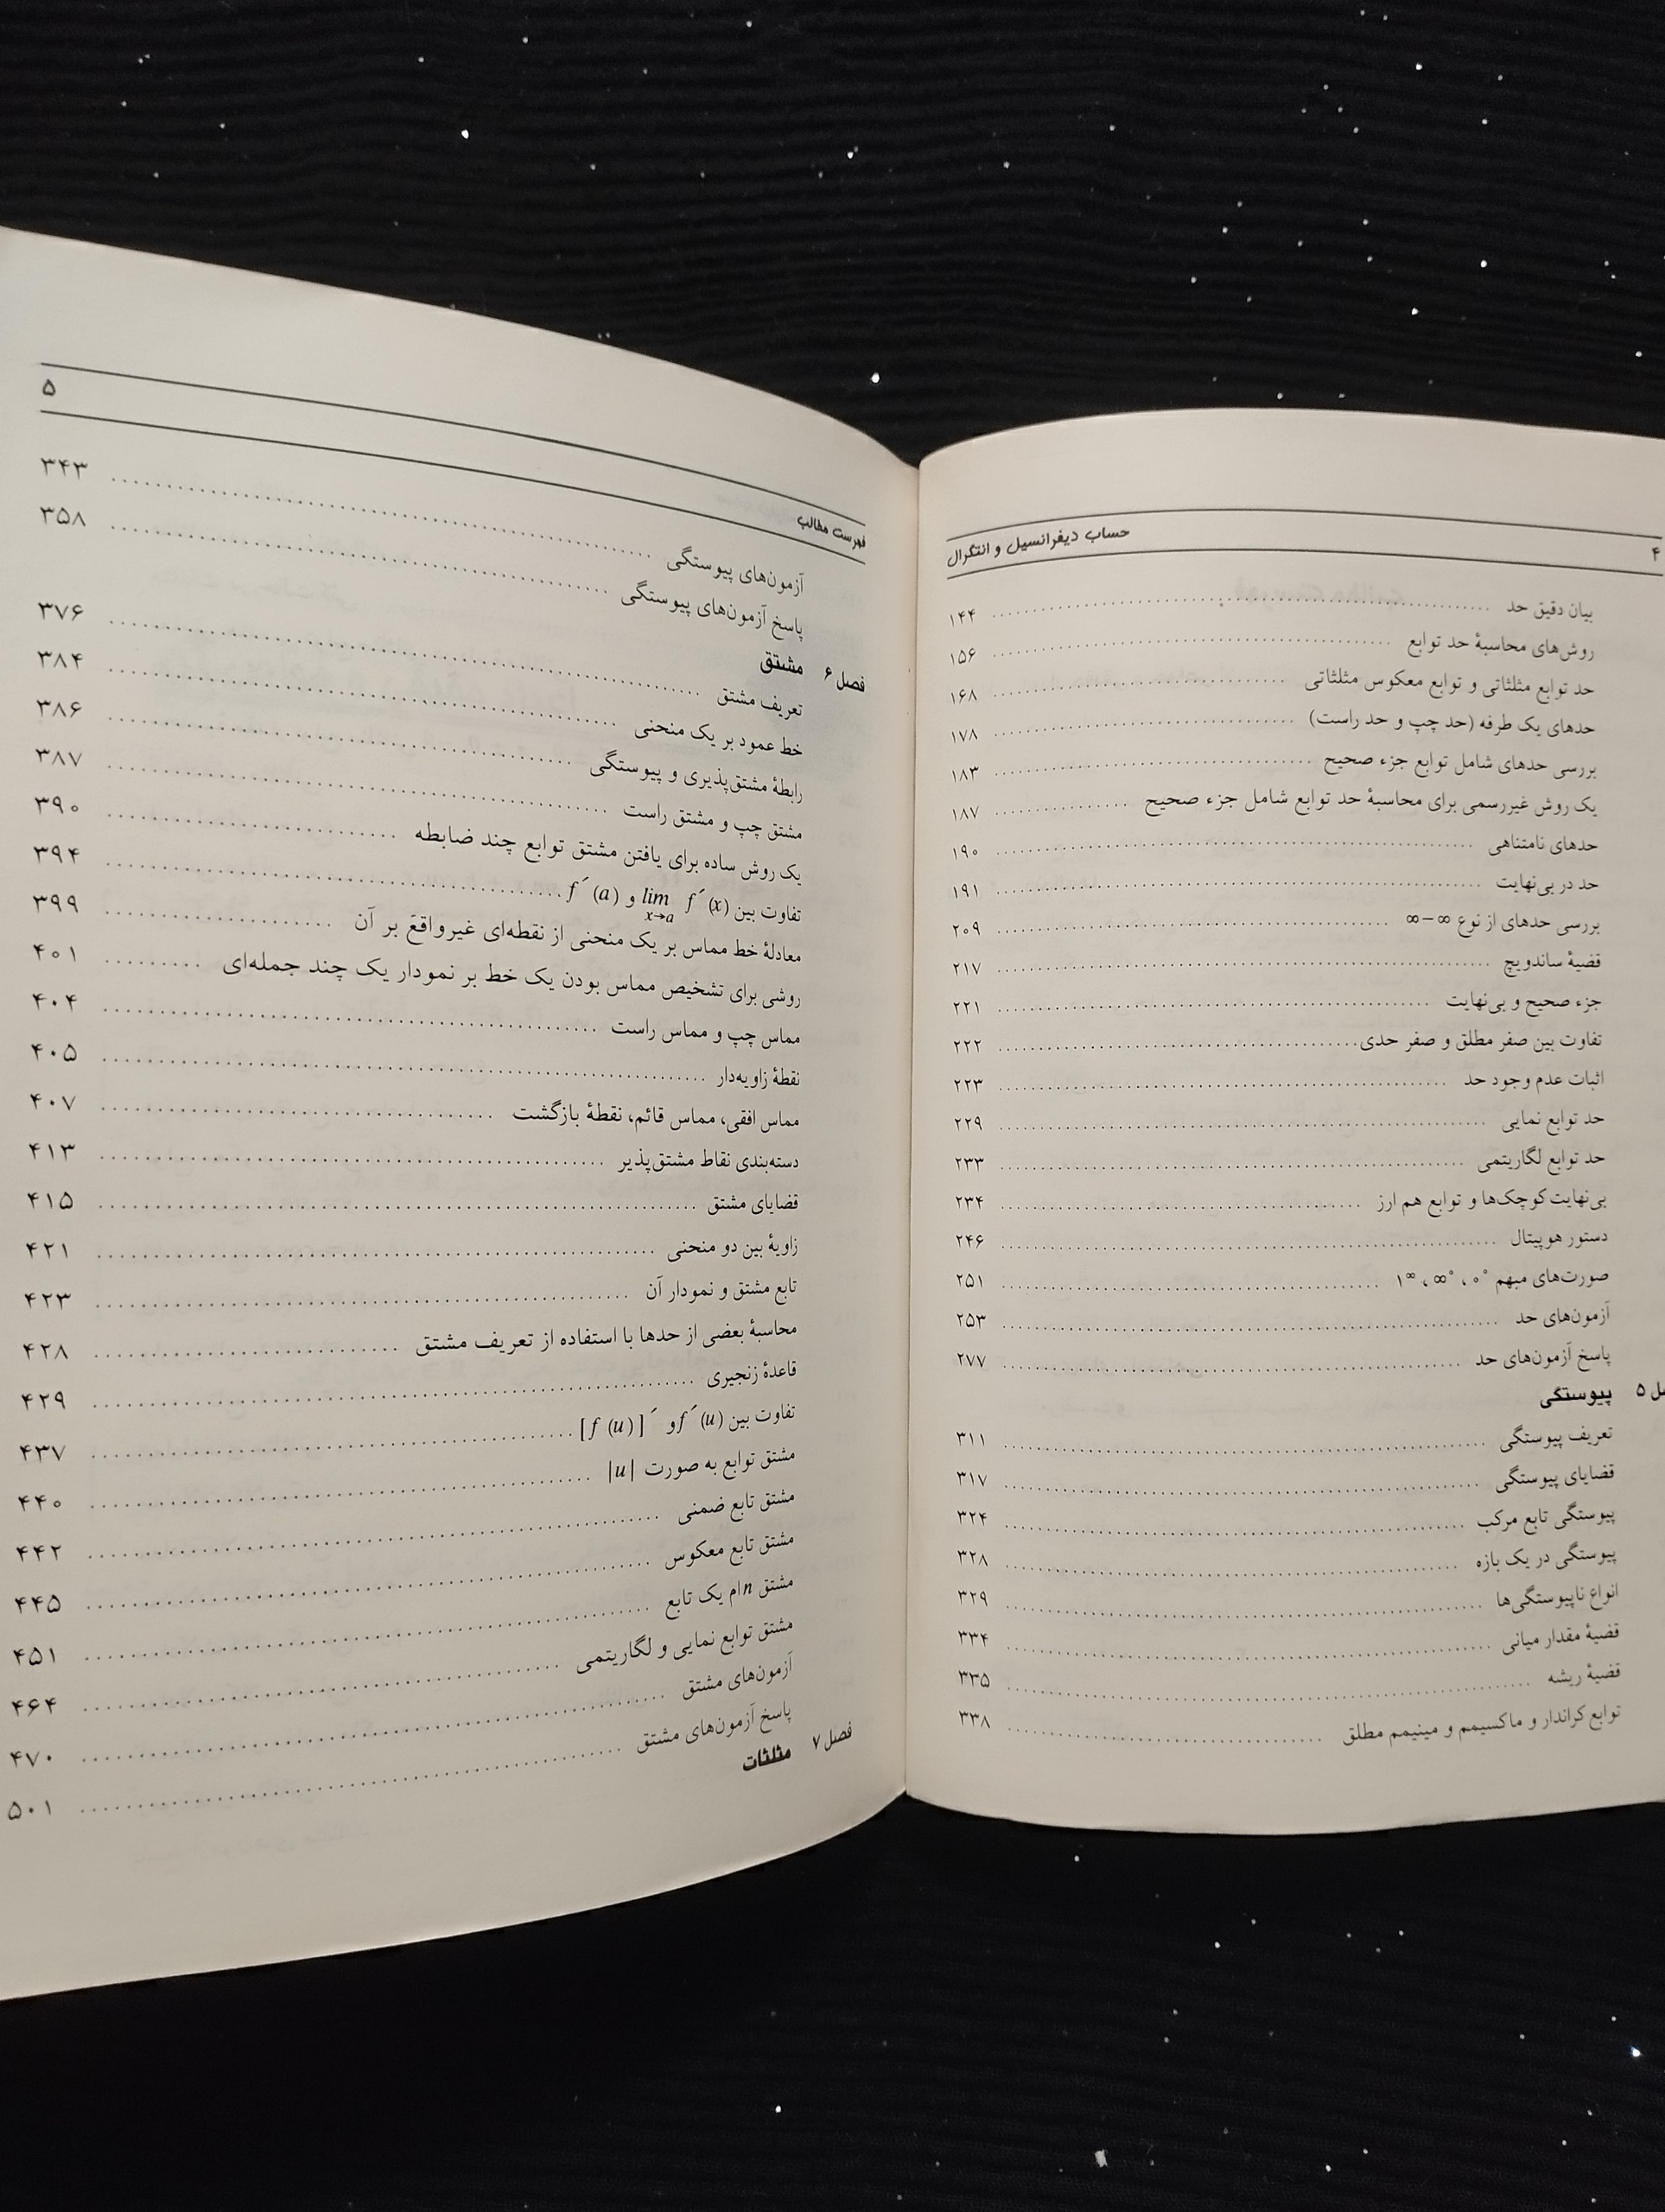 ۴ حساب دیفرانسیل و انتگرال
بیان دقیق حد ........ ۱۴۴
روش‌های محاسبهٔ حد توابع ........ ۱۵۶
حد توابع مثلثاتی و توابع معکوس مثلثاتی ........ ۱۶۸
حدهای یک طرفه (حد چپ و حد راست) ........ ۱۷۸
بررسی حدهای شامل توابع جزء صحیح ........ ۱۸۳
یک روش غیررسمی برای محاسبهٔ حد توابع شامل جزء صحیح ........ ۱۸۷
حدهای نامتناهی ........ ۱۹۰
حد در بی‌نهایت ........ ۱۹۱
بررسی حدهای از نوع ∞−∞ ........ ۲۰۹
قضیهٔ ساندویچ ........ ۲۱۷
جزء صحیح و بی‌نهایت ........ ۲۲۱
تفاوت بین صفر مطلق و صفر حدی ........ ۲۲۲
اثبات عدم وجود حد ........ ۲۲۳
حد توابع نمایی ........ ۲۲۹
حد توابع لگاریتمی ........ ۲۳۳
بی‌نهایت‌کوچک‌ها و توابع هم ارز ........ ۲۳۴
دستور هوپیتال ........ ۲۴۶
صورت‌های مبهم ۰^۰ ، ∞^۰ ، ۱^∞ ........ ۲۵۱
آزمون‌های حد ........ ۲۵۳
پاسخ آزمون‌های حد ........ ۲۷۷
۵ پیوستگی
تعریف پیوستگی ........ ۳۱۱
قضایای پیوستگی ........ ۳۱۷
پیوستگی تابع مرکب ........ ۳۲۴
پیوستگی در یک بازه ........ ۳۲۸
انواع ناپیوستگی‌ها ........ ۳۲۹
قضیهٔ مقدار میانی ........ ۳۳۴
قضیهٔ ریشه ........ ۳۳۵
توابع کراندار و ماکسیمم و مینیمم مطلق ........ ۳۳۸
فهرست مطالب ۵
آزمون‌های پیوستگی ........ ۳۴۳
پاسخ آزمون‌های پیوستگی ........ ۳۵۸
فصل ۶ مشتق
تعریف مشتق ........ ۳۷۶
خط عمود بر یک منحنی ........ ۳۸۴
رابطهٔ مشتق‌پذیری و پیوستگی ........ ۳۸۶
مشتق چپ و مشتق راست ........ ۳۸۷
یک روش ساده برای یافتن مشتق توابع چند ضابطه ........ ۳۹۰
تفاوت بین lim x→a f′(x) و f′(a) ........ ۳۹۴
معادلهٔ خط مماس بر یک منحنی از نقطه‌ای غیرواقع بر آن ........ ۳۹۹
روشی برای تشخیص مماس بودن یک خط بر نمودار یک چند جمله‌ای ........ ۴۰۱
مماس چپ و مماس راست ........ ۴۰۴
نقطهٔ زاویه‌دار ........ ۴۰۵
مماس افقی، مماس قائم، نقطهٔ بازگشت ........ ۴۰۷
دسته‌بندی نقاط مشتق‌پذیر ........ ۴۱۳
قضایای مشتق ........ ۴۱۵
زاویهٔ بین دو منحنی ........ ۴۲۱
تابع مشتق و نمودار آن ........ ۴۲۳
محاسبهٔ بعضی از حدها با استفاده از تعریف مشتق ........ ۴۲۸
قاعدهٔ زنجیری ........ ۴۲۹
تفاوت بین f′(u) و [f(u)]′ ........ ۴۳۷
مشتق توابع به صورت |u| ........ ۴۴۰
مشتق تابع ضمنی ........ ۴۴۲
مشتق تابع معکوس ........ ۴۴۵
مشتق nام یک تابع ........ ۴۵۱
مشتق توابع نمایی و لگاریتمی ........ ۴۶۴
آزمون‌های مشتق ........ ۴۷۰
پاسخ آزمون‌های مشتق ........ ۵۰۱
فصل ۷ مثلثات